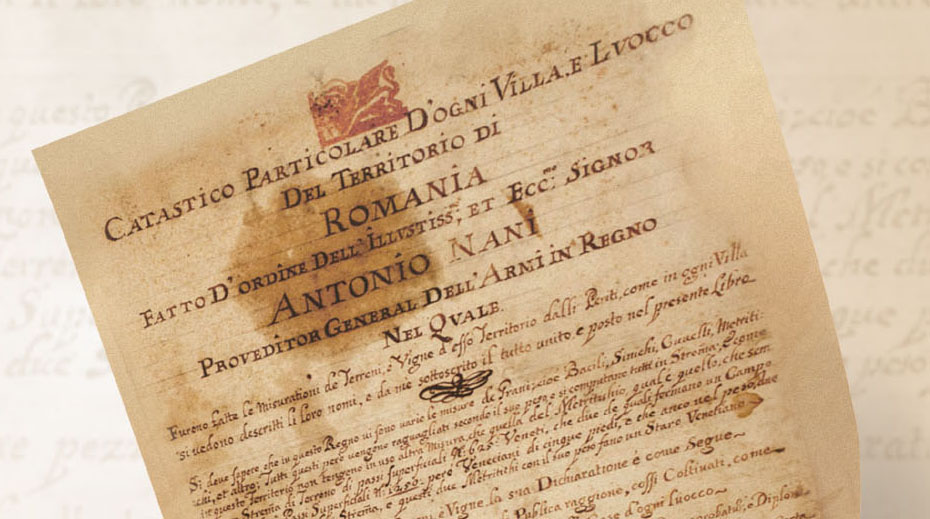 CATASTICO PARTICOLARE D'OGNI VILLA, E LVOCCO
DEL TERRITORIO DI
ROMANIA
FATTO D'ORDINE DELL'ILLVSTISS.º ET ECC.mo SIGNOR
ANTONIO NANI
PROVEDITOR GENERAL DELL'ARMI IN REGNO
NEL QVALE.
Furono fatte le misurationi de Terreni, e Vigne d'esso Territorio dalli Periti, come in ogni Villa
si vedono descritti li loro nomi, e da me sottoscritto il tutto unito e posto nel presente Libro
Si deve sapere che in questo Regno vi sono varie le misure de Grani, cioe Bacili, Sinichi, Guaelli, Metriti:
et altro; Tutti questi però vengono raguagliati secondo il suo peso e si computano tutti in Strema;
in questo Territorio non tengono in uso altra misura che quella del Metrituchio, qual'è quello, che sem
Strema di Terreno di passi superficiali N.º 625: Veneti, che due de quali formano un Campo
Passi Superficiali N.º 1250. però Veneciani di cinque piedi, e che anco nel peso, due
Strema, e questi due Metritichi con il suo peso fano un Staro Venetiano
e Vigne la sua Dicharatione è come Segue
Publica raggione, cossi Coltivati, come
Case d'ogni luocco